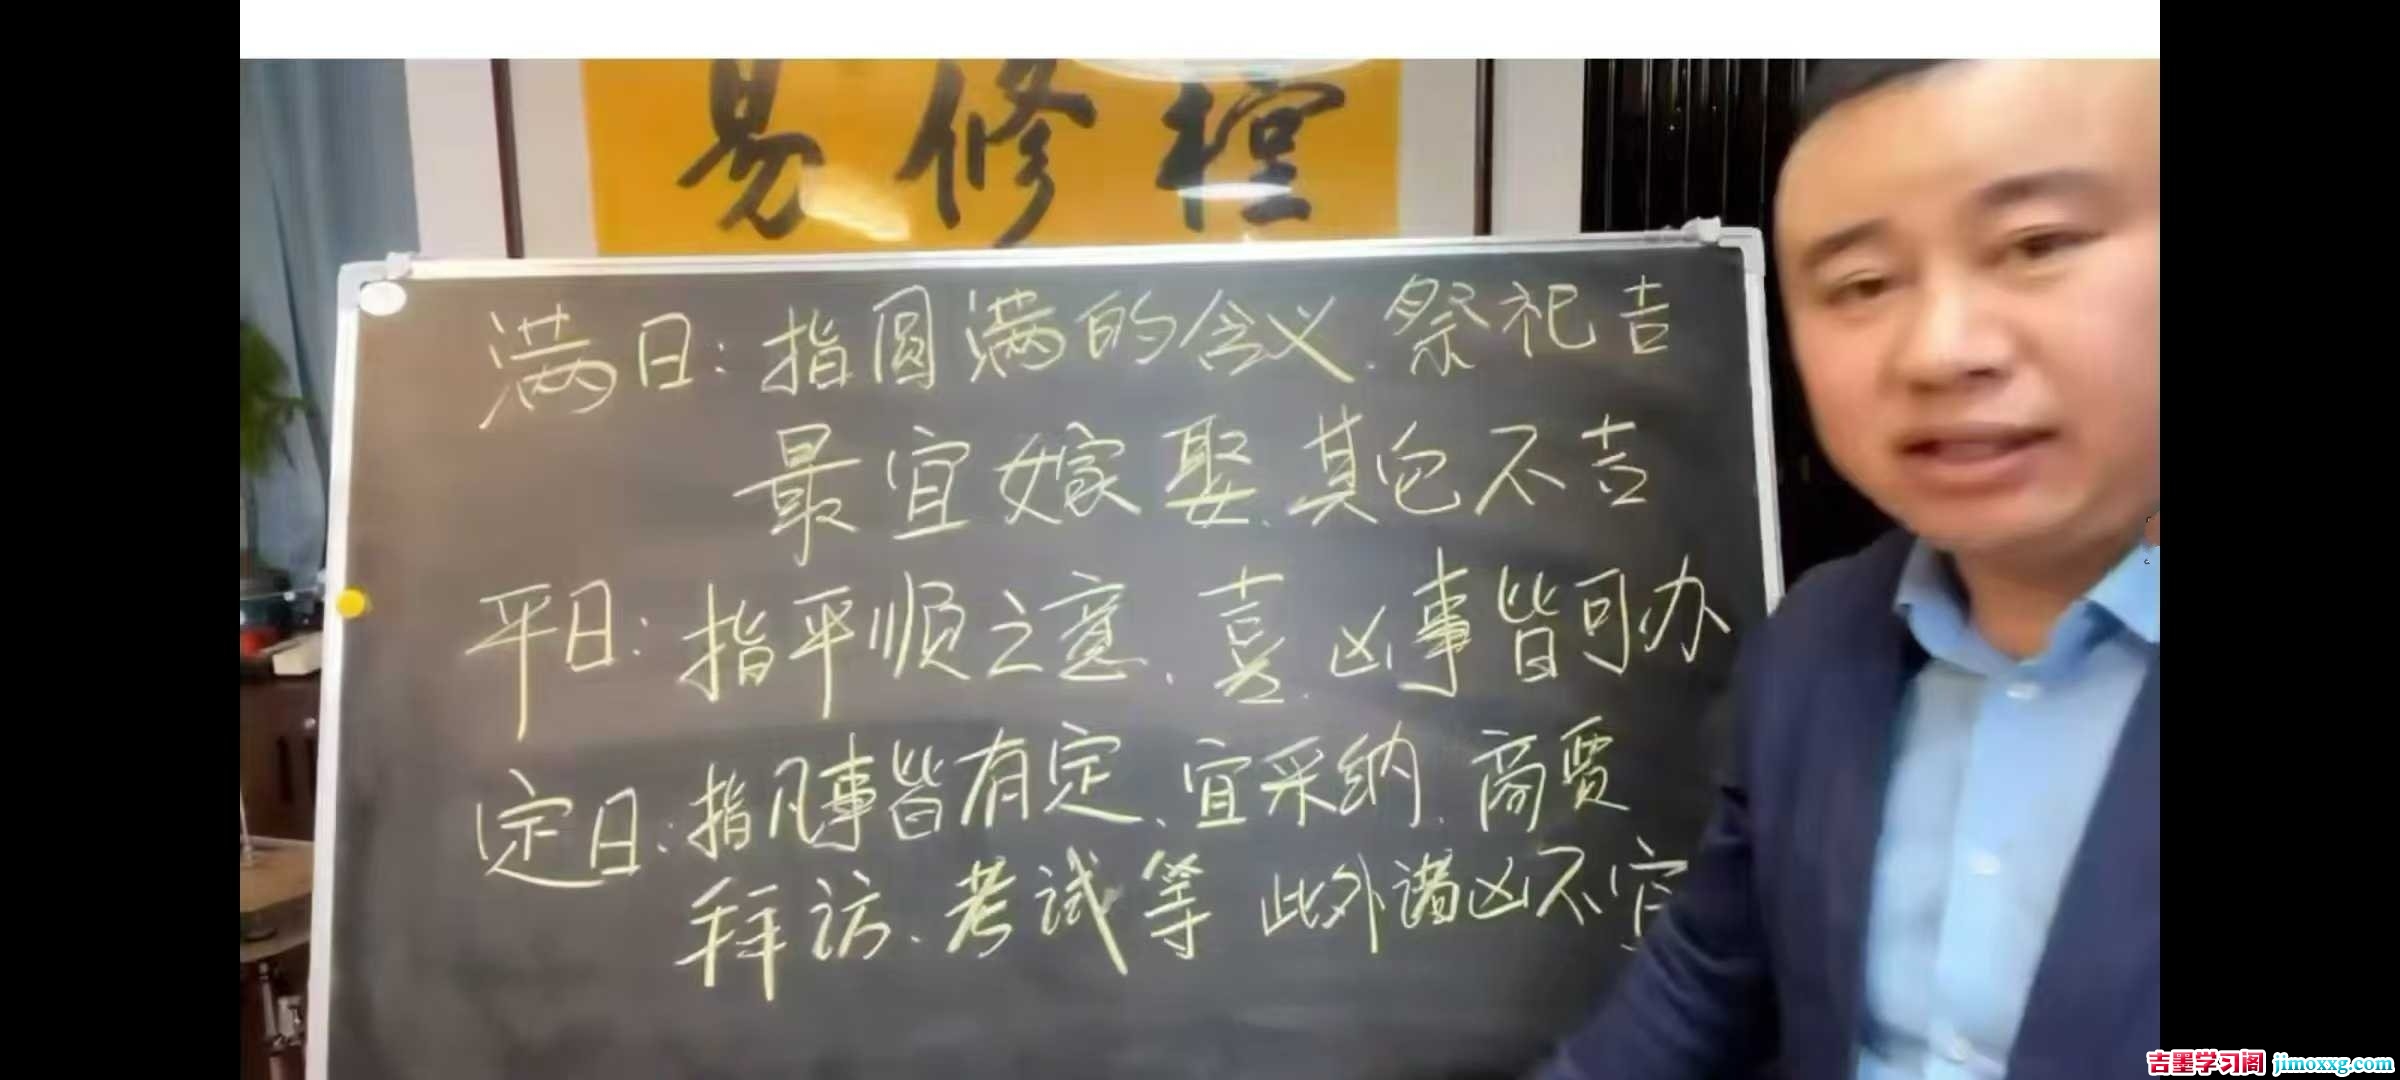 易修桓
满日：指圆满的含义.祭祀吉
最宜嫁娶.其它不吉
平日：指平顺之意.喜.凶事皆可办
定日：指凡事皆有定.宜采纳.商贾
拜访.考试等 此外诸凶不宜
吉墨学习阁 jimoxxg.com